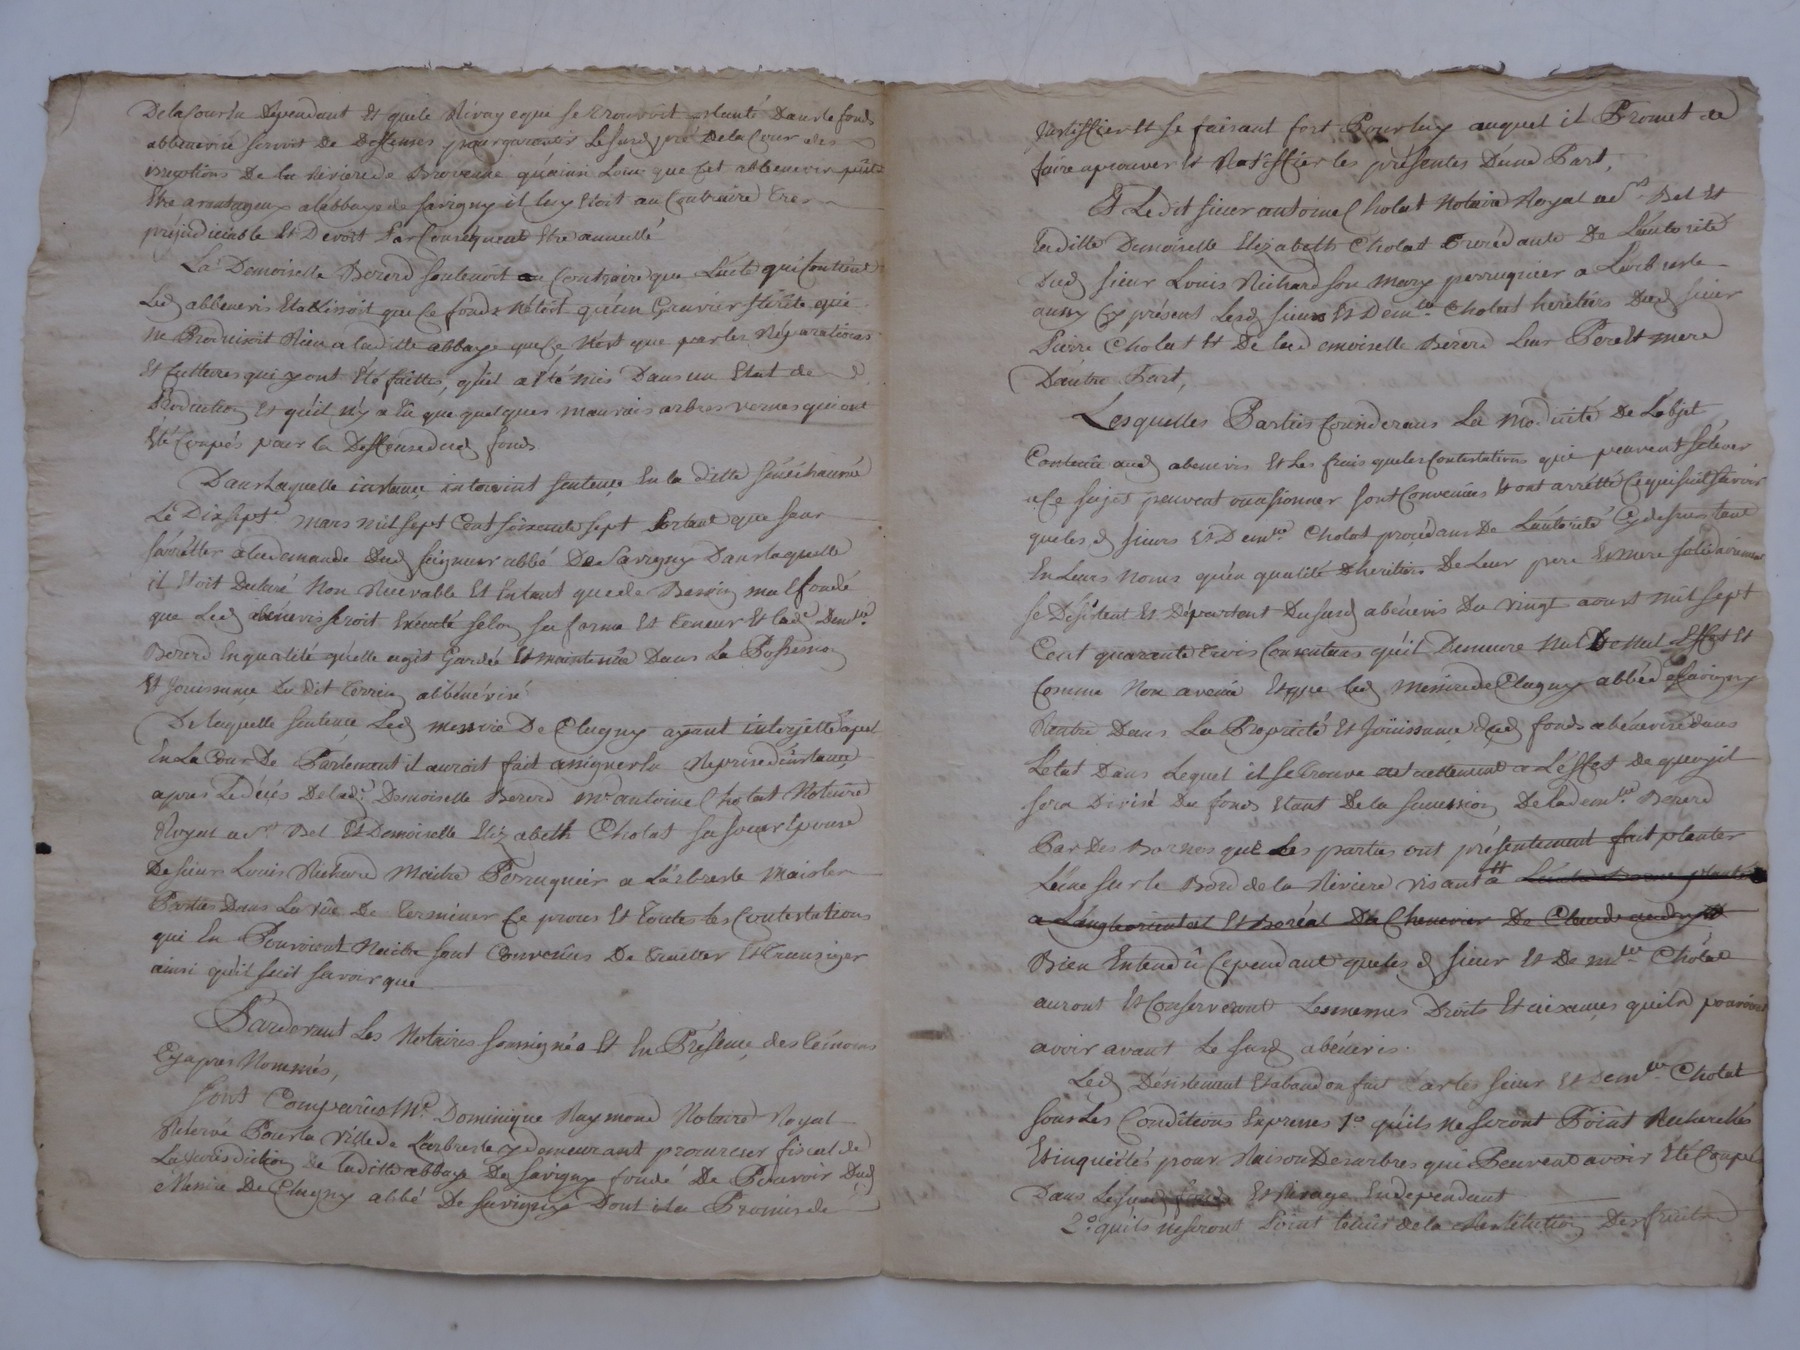 De la Cour en dependant et que le Rivage qui se trouvoit planté Dans le fonds
abbenevisé servoit de Deffenses pour garentir le susd pré De la Cour des
irruptions De la Riviere de Brevenne qu'ainsi Loin que cet abbenevis put
Etre avantageux a labbaye de Savigny il luy Etoit au Contraire tres
préjudiciable Et Devoit Par Consequent Etre annullé
La Demoiselle Bererd soutenoit au Contraire que L'acte qui Contient
Led abbenevis Etablissoit que Ce fonds N'étoit qu'un Gravier Sterile qui
ne Produisoit Rien a la ditte abbaye que Ce N'est que par les Réparations
Et cultures qui y ont Eté faittes, qu'il a été mis Dans un Etat de
Production Et qu'il n'y a Eû que quelques mauvais arbres vernes qui ont
Eté Coupés pour la Deffense dud fonds
Dans Laquelle instance intervint sentence En la ditte sénéchaussé
Le Dix sept mars mil sept Cent soixante sept Portant que sans
s'arrêter a la demande Dud seigneur abbé De Savigny Dans laquelle
il Etoit Declaré Non Recevable Et Entant que de Besoin mal fondé
que Led abénevis seroit Executé selon sa forme Et teneur Et lade Demlle
Bererd En qualité qu'elle agit Gardée Et maintenüe Dans La Possession
Et Jouissance Du dit terrein abbénévisé
De laquelle sentence Led messire De Clugny ayant interjetté apel
En La Cour De Parlement il auroit fait assigner en Reprise d'instance
apres Le décés De lade Demoiselle Bererd Me antoine Cholat Notaire
Royal a St Bel Et Demoiselle Elizabeth Cholat sa soeur Epouse
De sieur Louis Richard Maitre Perruquier a L'arbresle Mais les
Parties Dans La vüe De terminer Ce proces Et toutes les Contestations
qui En Pourroient Naitre sont Convenües De traitter Et transiger
ainsi qu'il suit savoir que
Pardevant Les Notaires soussignés Et En Présence des témoins
Cy apres Nommés,
sont Comparûs Me Dominique Raymond Notaire Royal
Reservé Pour la Ville de L'arbresle y demeurant procureur fiscal de
La Jurisdiction de la ditte abbaye De Savigny fondé De Pouvoir Dud
Messire De Clugny abbé De Savigny Dont il a Promis de
Justiffier Et se faisant fort Pour luy auquel il Promet de
faire aprouver Et Ratiffier les présentes D'une Part,
Et Le dit sieur antoine Cholat Notaire Royal a St Bel Et
laditte Demoiselle Elizabeth Cholat Procédante De L'autorité
Dud sieur Louis Richard son mary perruquier a L'arbresle
aussy Cy présent Lesd sieur Et Demlle Cholat heritiers Dud sieur
Pierre Cholat Et De lade demoiselle Bererd Leur Pere Et mere
D'autre Part,
Lesquelles Parties Considerans La modicité De L'objet
Contenû aud abenevis Et Les frais que les Contestations qui peuvent s'élever
a Ce sujet peuvent occasionner sont Convenües Et ont arrétté Ce qui suit savoir
que les d sieurs Et Demlle Cholat procédans De L'autorité Cy dessus tant
En Leurs Noms qu'en qualité D'heritiers De Leur pere Et mere solidairement
se Désistent Et Départent Du susd abénevis Du vingt aoust mil sept
Cent quarante trois Consentans qu'il Demeure Nul De Nul Effet Et
Comme Non avenu Et que led Messire de Clugny abbé de Savigny
Rentre Dans La Propriété Et Joüissance Dud fonds abénevisé dans
L'etat Dans Lequel il se trouve actuellement a L'effet De quoy il
sera Divisé Du fonds Etant De la succession De lade demlle Bererd
Par Des Bornes que Les parties ont présentement fait planter
L'une sur le Bord de la Riviere visant a L'autre Borne plantée
a L'angle oriental Et Boréal Du Chenevier De Claude
Bien Entendû Cependant que les d sieur Et Demlle Cholat
auront Et Conserveront Les mêmes Droits Et aisances qu'ils pouvoient
avoir avant Le susd abénevis.
Led Désistement Et abandon fait Par les sieur Et Demlle Cholat
sous Les Conditions Expresses 1o qu'ils Ne seront Point Recherchés
Et inquiétés pour Raison Des arbres qui Peuvent avoir Eté Coupés
Dans Le susd fonds Et Rivage En dependant
2o qu'ils Ne seront Point tenus de la Restitution Des fruits